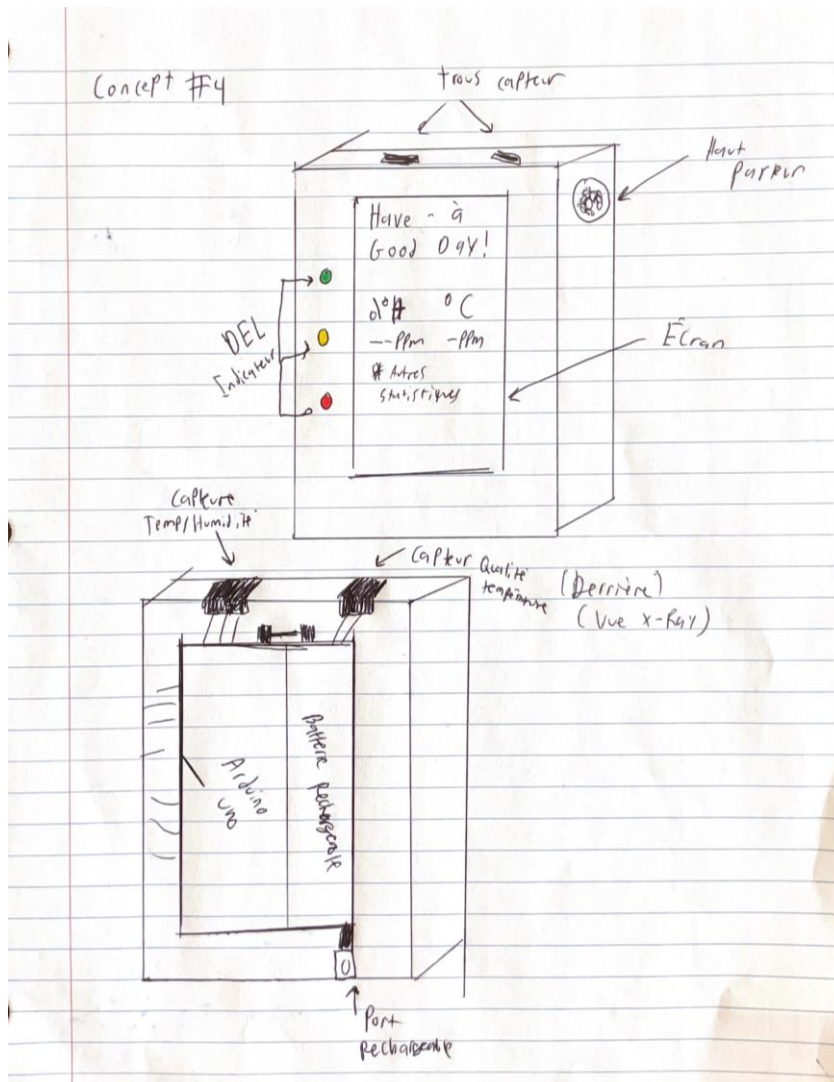 Concept #4
trous capteur
Haut
Parleur
Have - à
Good Day!
°C
--PPm -PPm
# Autres
statistiques
DEL
Indicateur
Écran
Capteure
Temp/Humidité
Capteur Qualité
température
(Derrière)
(Vue X-Ray)
Arduino
uno
Batterie Rechargeable
Port
Rechargeable